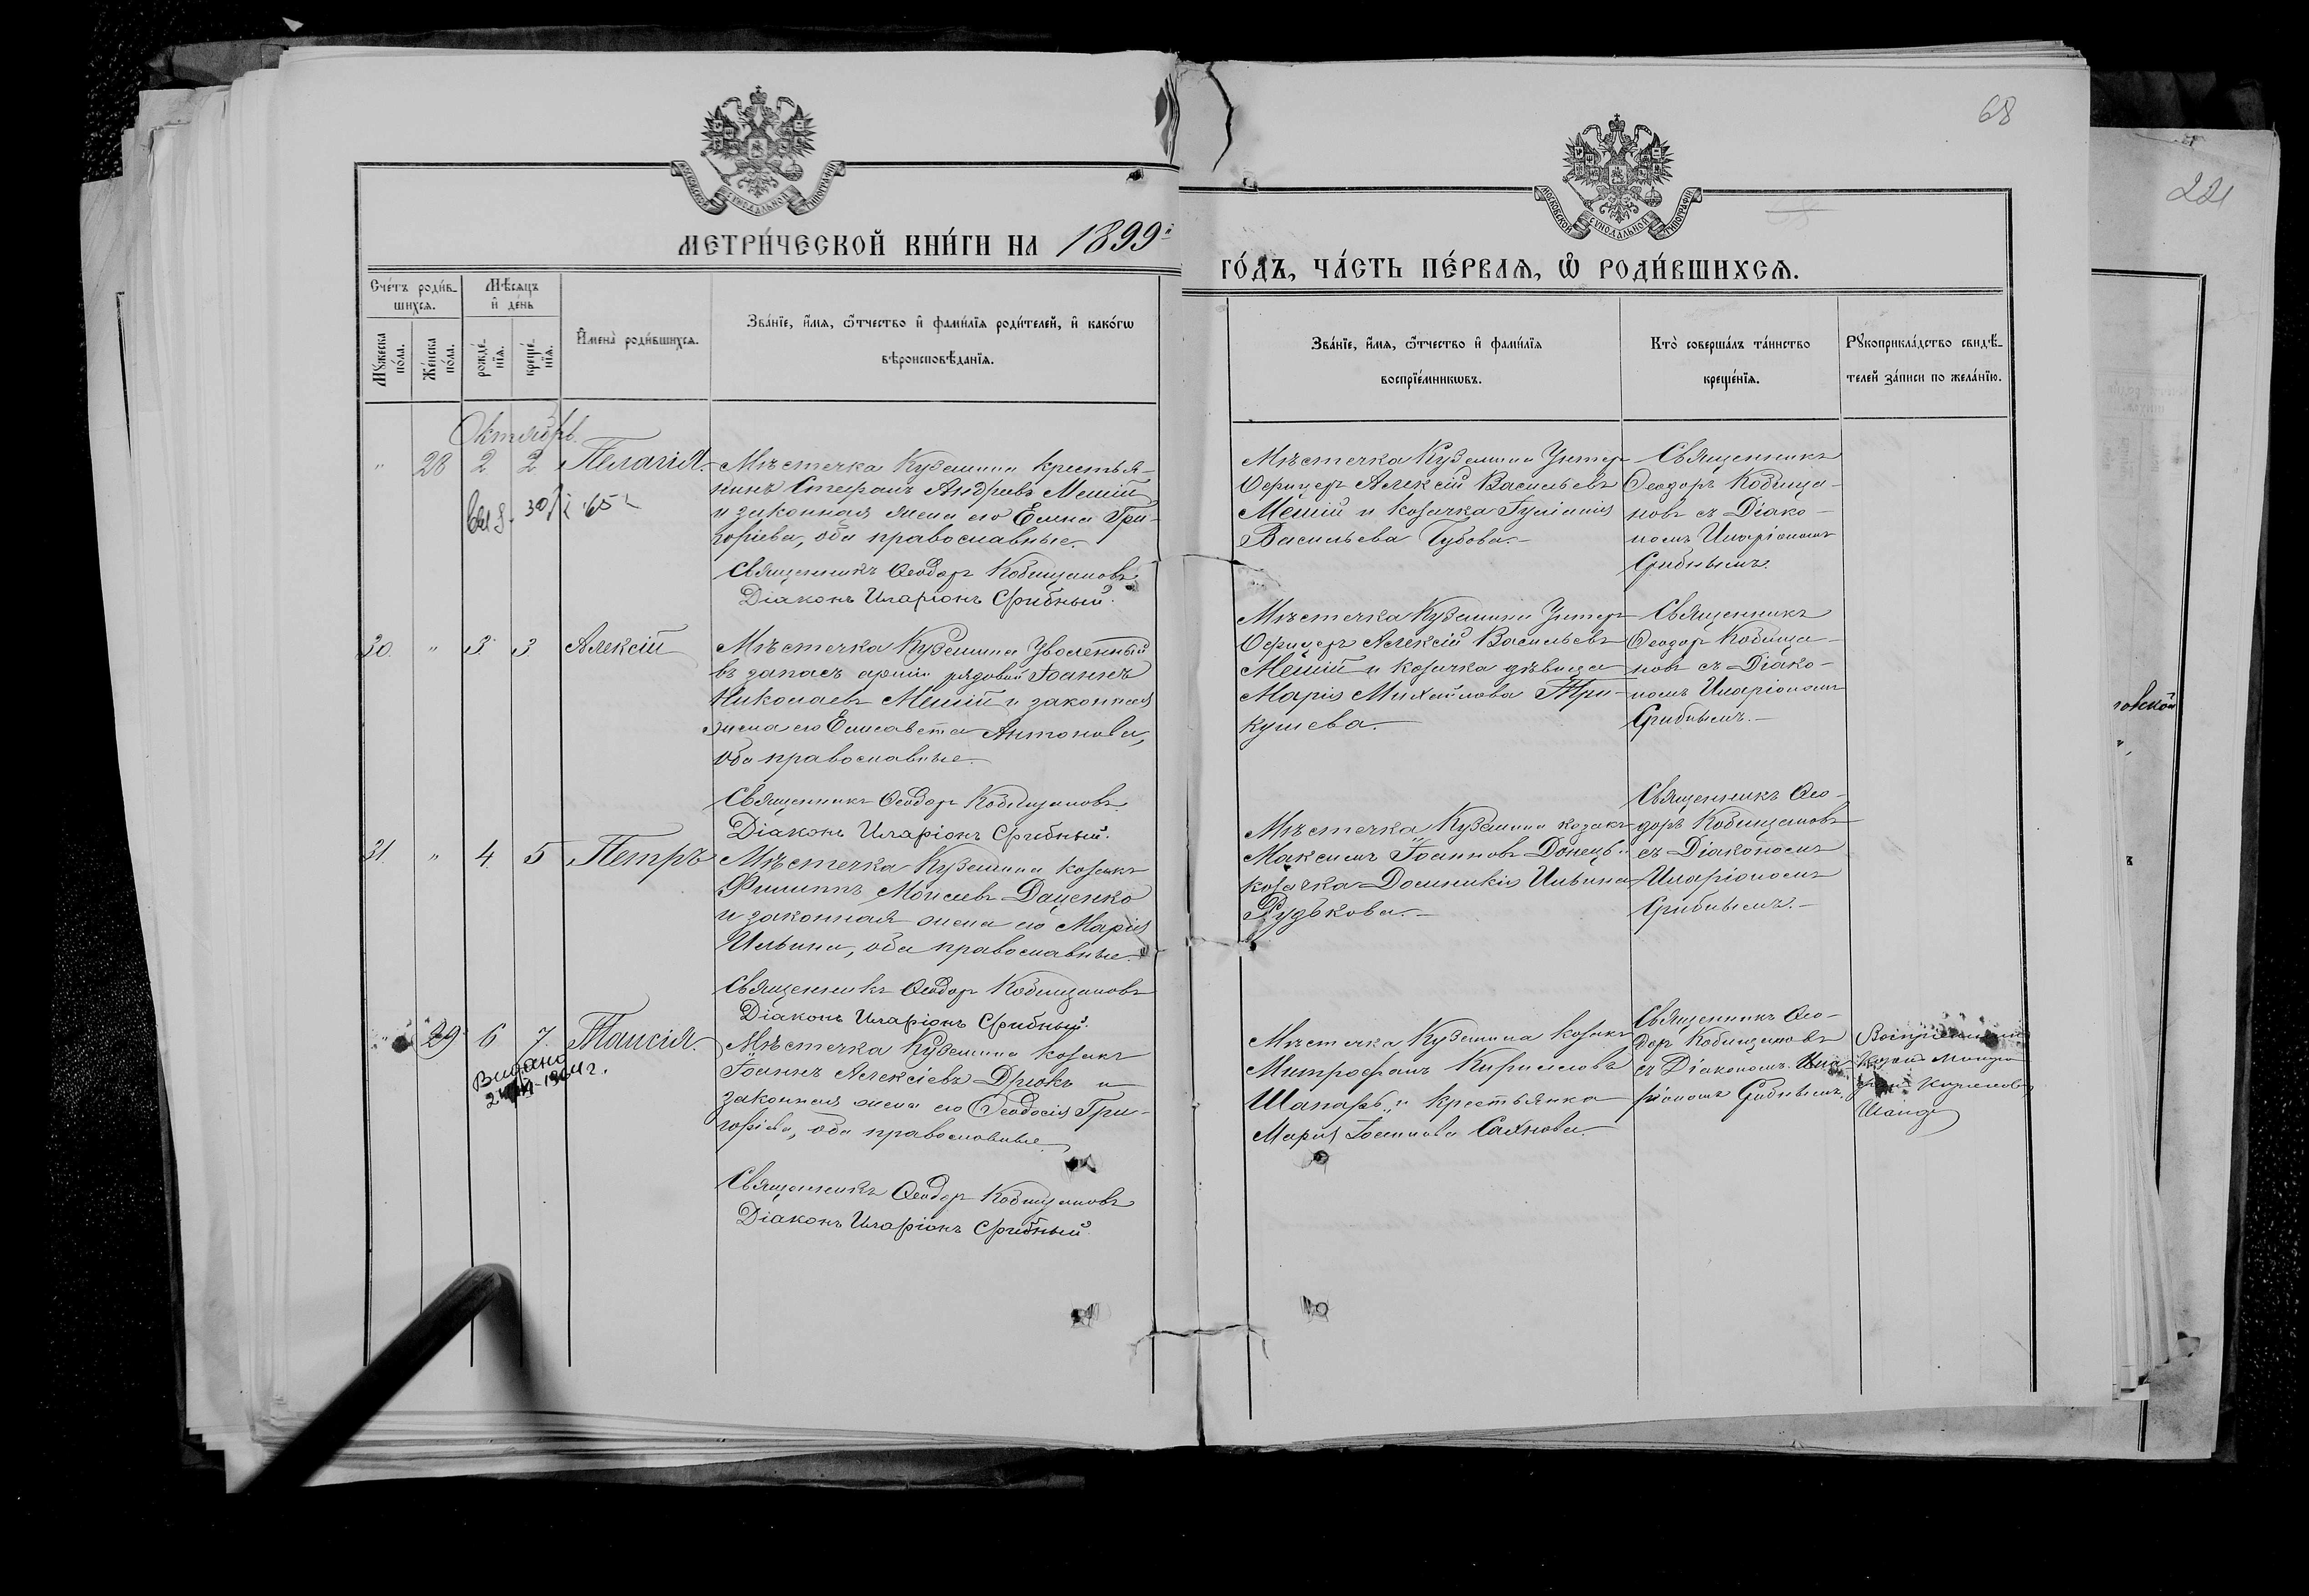 68
221
МОСКОВСКОЙ СѴНОДАЛЬНОЙ ТИПОГРАФІИ
МОСКОВСКОЙ СѴНОДАЛЬНОЙ ТИПОГРАФІИ
МЕТРИ́ЧЕСКОЙ КНИ́ГИ НА 1899й
ГО́ДЪ, ЧА́СТЬ ПЕ́РВАѦ, Ѽ РОДИ́ВШИХСѦ.
Сче́тъ роди́в-
шихсѧ.
Мѣ́сѧцъ
и де́нь
Мꙋжеска по́ла.
Же́нска по́ла.
рожде́-
нїѧ.
креще́-
нїѧ.
Имена̀ роди́вшихсѧ.
Зва́нїе, и́мѧ, ѻ́тчество и фами́лїѧ роди́телей, и како́гѡ
вѣроисповѣ́данїѧ.
Зва́нїе, и́мѧ, ѻ́тчество и фами́лїѧ
воспрїе́мникѡвъ.
Кто̀ соверша́лъ та́инство
креще́нїѧ.
Рꙋкоприкла́дство свидѣ́-
телей за́писи по жела́нїю.
Октябрь.
" 28 2 2 Пелагія.
Мѣстечка Куземина крестья-
нинъ Стефанъ Андреевъ Мешій
и законная жена его Елена Гри-
горіева, оба православные.
Священникъ Ѳеодоръ Кобищановъ
Діаконъ Иларіонъ Срибный.
Мѣстечка Куземина Унтеръ
Офицеръ Алексій Васильевъ
Мешій и козачка Іуліанія
Васильева Губова.
Священникъ
Ѳеодоръ Кобища-
новъ съ Діако-
номъ Иларіономъ
Срибнымъ.
30. " 3. 3. Алексій
Мѣстечка Куземина Уволенный
въ запасъ арміи рядовой Іоаннъ
Николаевъ Мешій и законная
жена его Елисавета Антонова,
оба православные.
Священникъ Ѳеодоръ Кобищановъ
Діаконъ Иларіонъ Срибный.
Мѣстечка Куземина Унтеръ
Офицеръ Алексій Васильевъ
Мешій и козачка дѣвица
Марія Михайлова При-
кушева.
Священникъ
Ѳеодоръ Кобища-
новъ съ Діако-
номъ Иларіономъ
Срибнымъ.
31. " 4. 5 Петръ
Мѣстечка Куземина козакъ
Филиппъ Моисеевъ Даценко
и законная жена его Марія
Ильина, оба православные.
Священникъ Ѳеодоръ Кобищановъ
Діаконъ Иларіонъ Срибный.
Мѣстечка Куземина козакъ
Максимъ Іоанновъ Донецъ и
козачка Домникія Ильина
Рудькова.
Священникъ Ѳео-
доръ Кобищановъ
съ Діакономъ
Иларіономъ
Срибнымъ.
" 29 6 7. Таисія.
Видано
Мѣстечка Куземина козакъ
Іоаннъ Алексіевъ Дрюкъ и
законная жена его Ѳеодосія Гри-
горіева, оба православные.
Священникъ Ѳеодоръ Кобищановъ
Діаконъ Иларіонъ Срибный.
Мѣстечка Куземина козакъ
Митрофанъ Кирилловъ
Шапаръ и крестьянка
Марія Іоаннова Саянова.
Священникъ Ѳео-
доръ Кобищановъ
съ Діакономъ Ила-
ріономъ Срибнымъ.